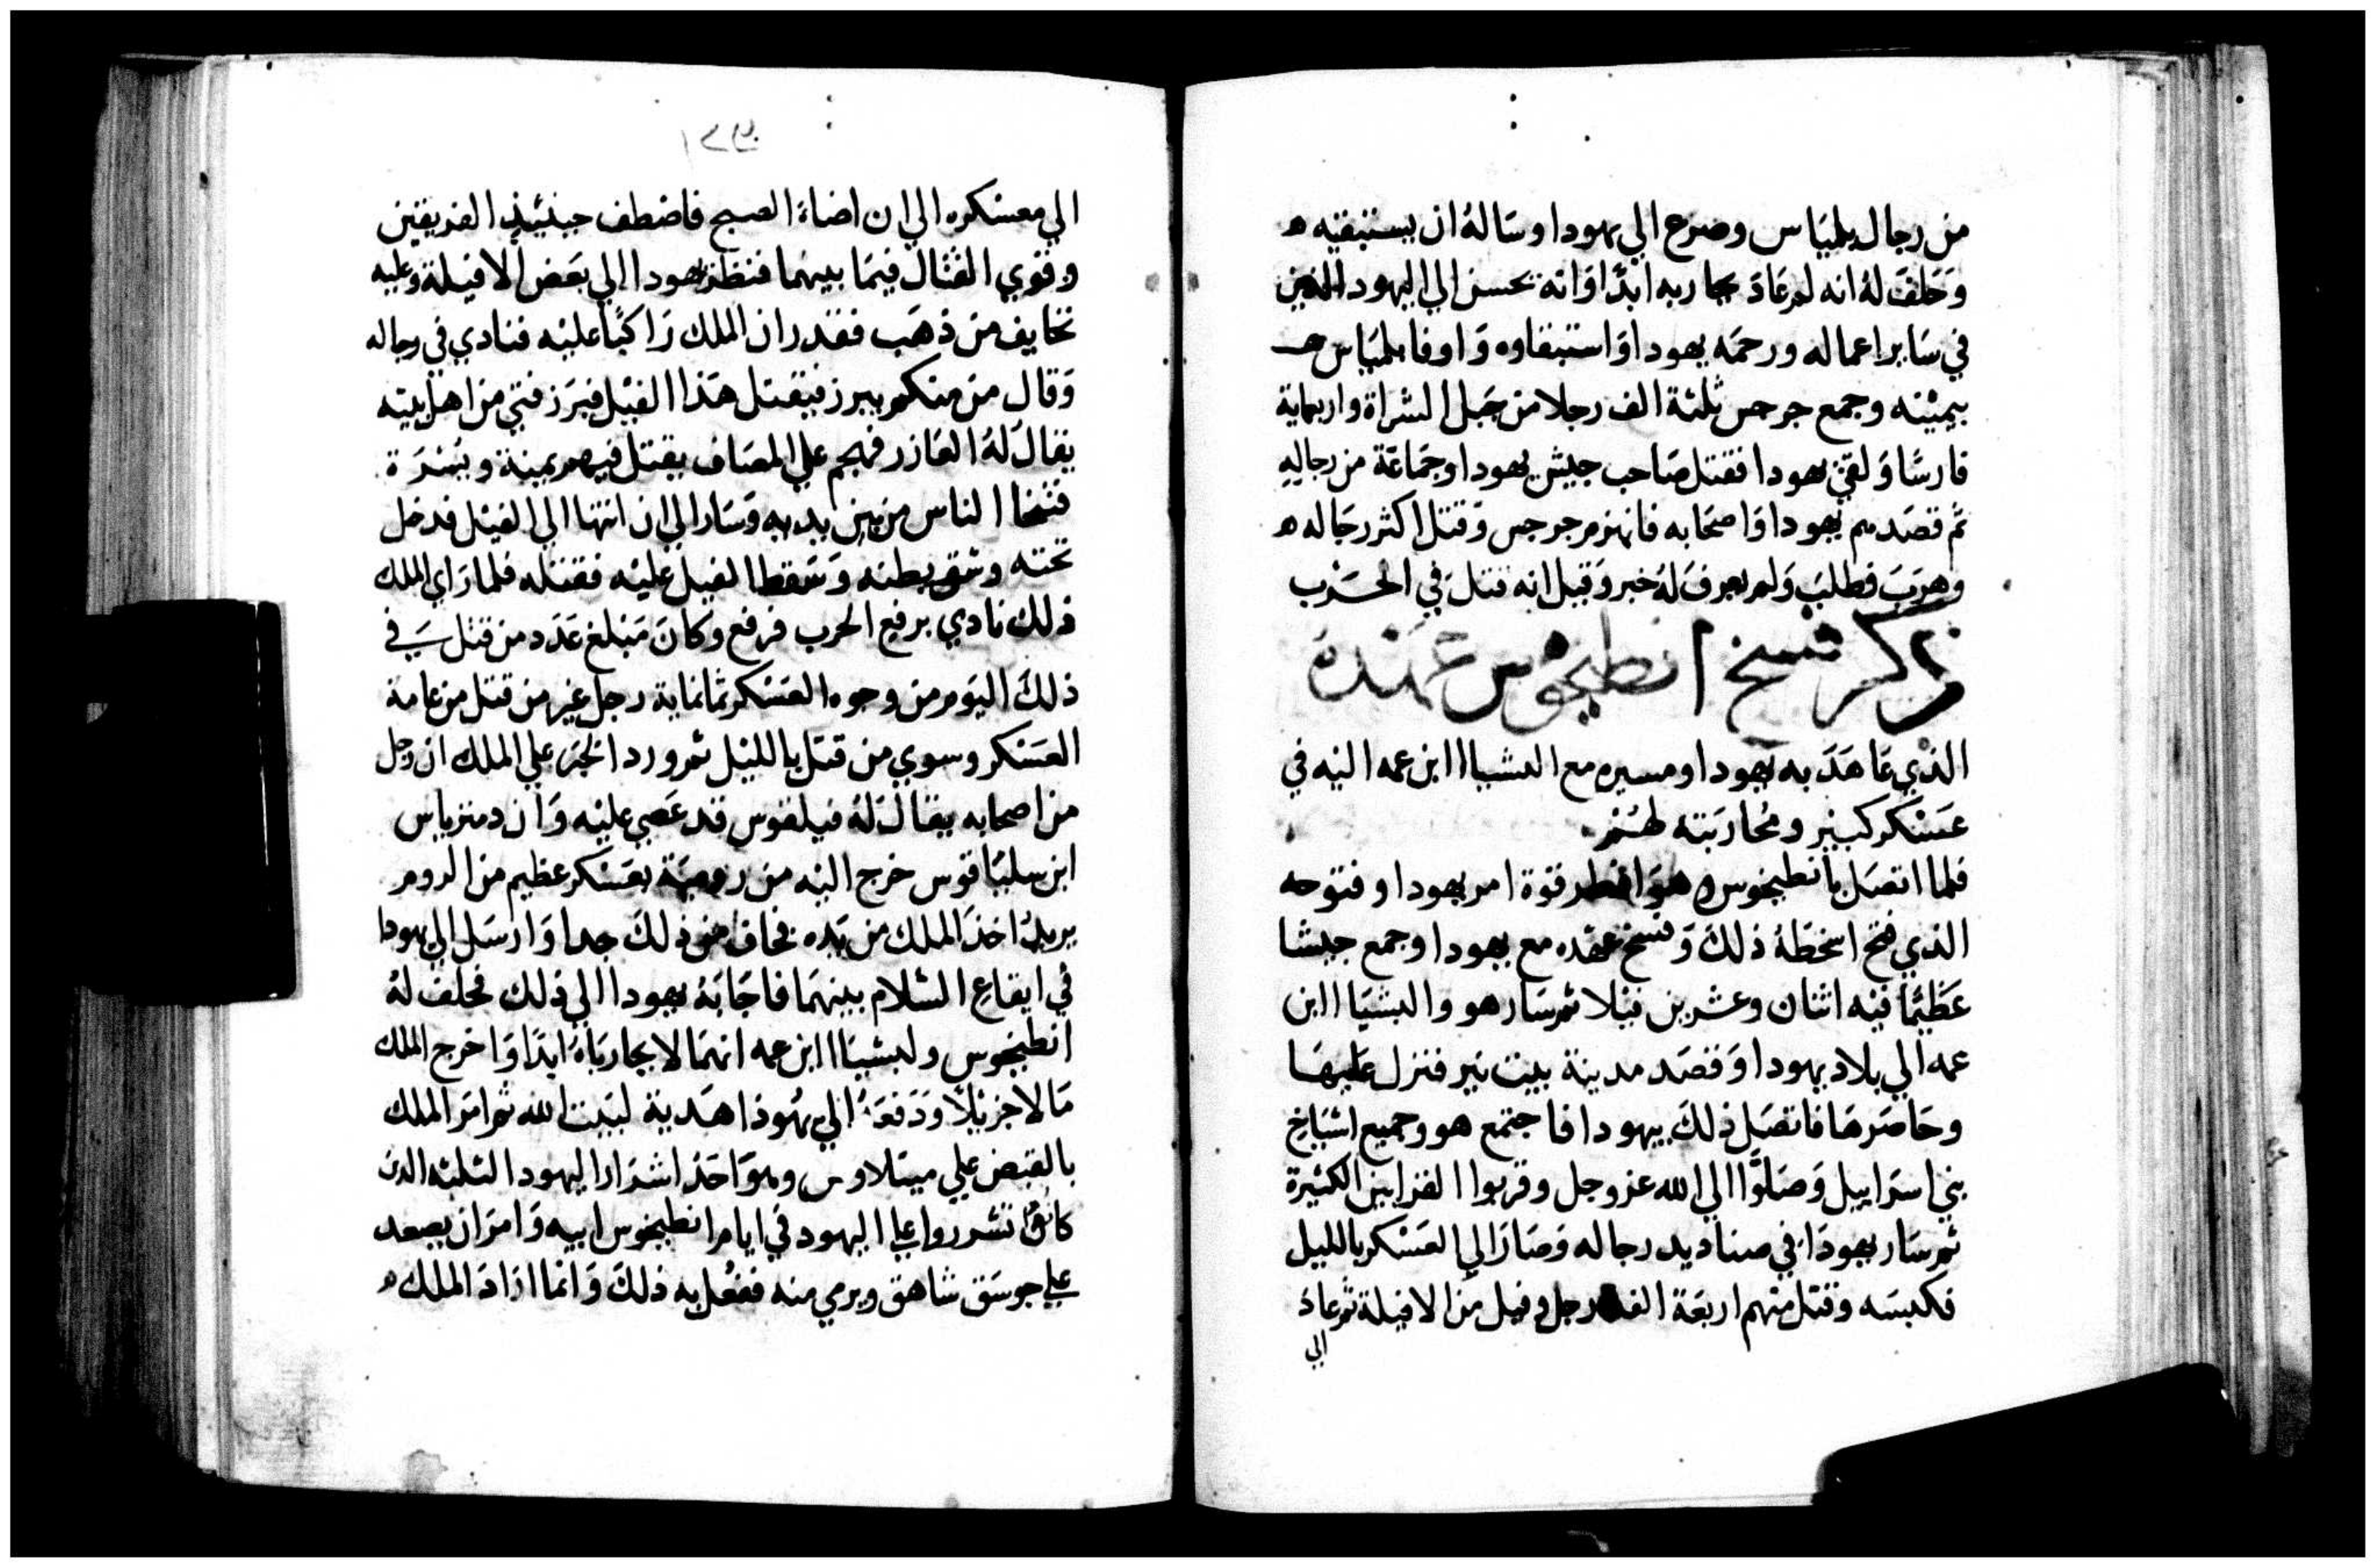 من رجال بلمياس وضرع الي يهودا وساله ان يستبقيه ه
وحلف له انه لم عاد يحاربه ابدا وانه يحسن الي اليهود الذين
في ساير اعماله ورحمه يهودا واستبقاوه واوفا بلمياس
بيمينه وجمع جرجس ثلثة الف رجلا من جبل الشراة واربماية
فارسا ولقي يهودا فقتل صاحب جيش يهودا وجماعة من رجاله
ثم قصدهم يهودا واصحابه فانهزم جرجس وقتل اكثر رجاله ه
وهرب فطلب ولم يعرف له خبر وقيل انه قتل في الحرب
ذكر فسخ انطيخوس عهده
الذي عاهد به يهودا ومسيره مع العشيا ابن عمه اليه في
عسكر كبير ومحاربته لهم
فلما اتصل بانطيخوس قوة امر يهودا وفتوحه
الذي فتح اسخطه ذلك وفسخ عقده مع يهودا وجمع جيشا
عظيما فيه اثنان وعشرين فيلا ثم سار هو والبشيا ابن
عمه الي بلاد يهودا وقصد مدينة بيت نير فنزل عليها
وحاصرها فاتصل ذلك بيهودا فاجتمع هو وجميع اشياخ
بني اسراييل وصلوا الي الله عز وجل وقربوا القرابين الكثيرة
ثم سار يهودا في صناديد رجاله وصار الي العسكر بالليل
فكبسه وقتل منهم اربعة الف رجل وفيل من الافيلة ثم عاد
الي
الي معسكره الي ان اضاء الصبح فاضطف حينئيذ الفريقين
وقوي القتال فيما بينهما فنظر يهودا الي بعض الافيلة وعليه
تخايف من ذهب فقدر ان الملك راكبا عليه فنادي في رجاله
وقال من منكم يبرز فيقتل هذا الفيل فبرز فتي من اهل بيته
يقال له العازر فهجم علي المصاف يقتل فيهم يمينة ويسرة
فتنحا الناس من بين يديه وسار الي ان انتها الي الفيل فدخل
تحته وشق بطنه وسقط الفيل عليه فقتله فلما راي الملك
ذلك نادي برفع الحرب فرفع وكان مبلغ عدد من قتل في
ذلك اليوم من وجوه العسكر ثمانماية رجل غير من قتل من عامة
العسكر وسوي من قتل بالليل ثم ورد الخبر علي الملك ان رجل
من اصحابه يقال له فيلفوس قد عصي عليه وان دمترياس
ابن سلياقوس خرج اليه من رومية بعسكر عظيم من الروم
يريد اخذ الملك من يده فخاف من ذلك جدا وارسل الي يهودا
في ايقاع السلام بينهما فاجابه يهودا الي ذلك فحلف له
انطيخوس ولبشيا ابن عمه انهما لا يحارباه ابدا واخرج الملك
مالا جزيلا ودفعه الي يهودا هدية لبيت الله ثم امر الملك
بالقبض علي مينلاوس وهو احد اشرار اليهود الثلثه الذين
كانوا تشرروا علي اليهود في ايام انطيخوس ابيه وامر ان يصعد
علي جوسق شاهق ويرمي منه ففعل به ذلك وانما اراد الملك ه